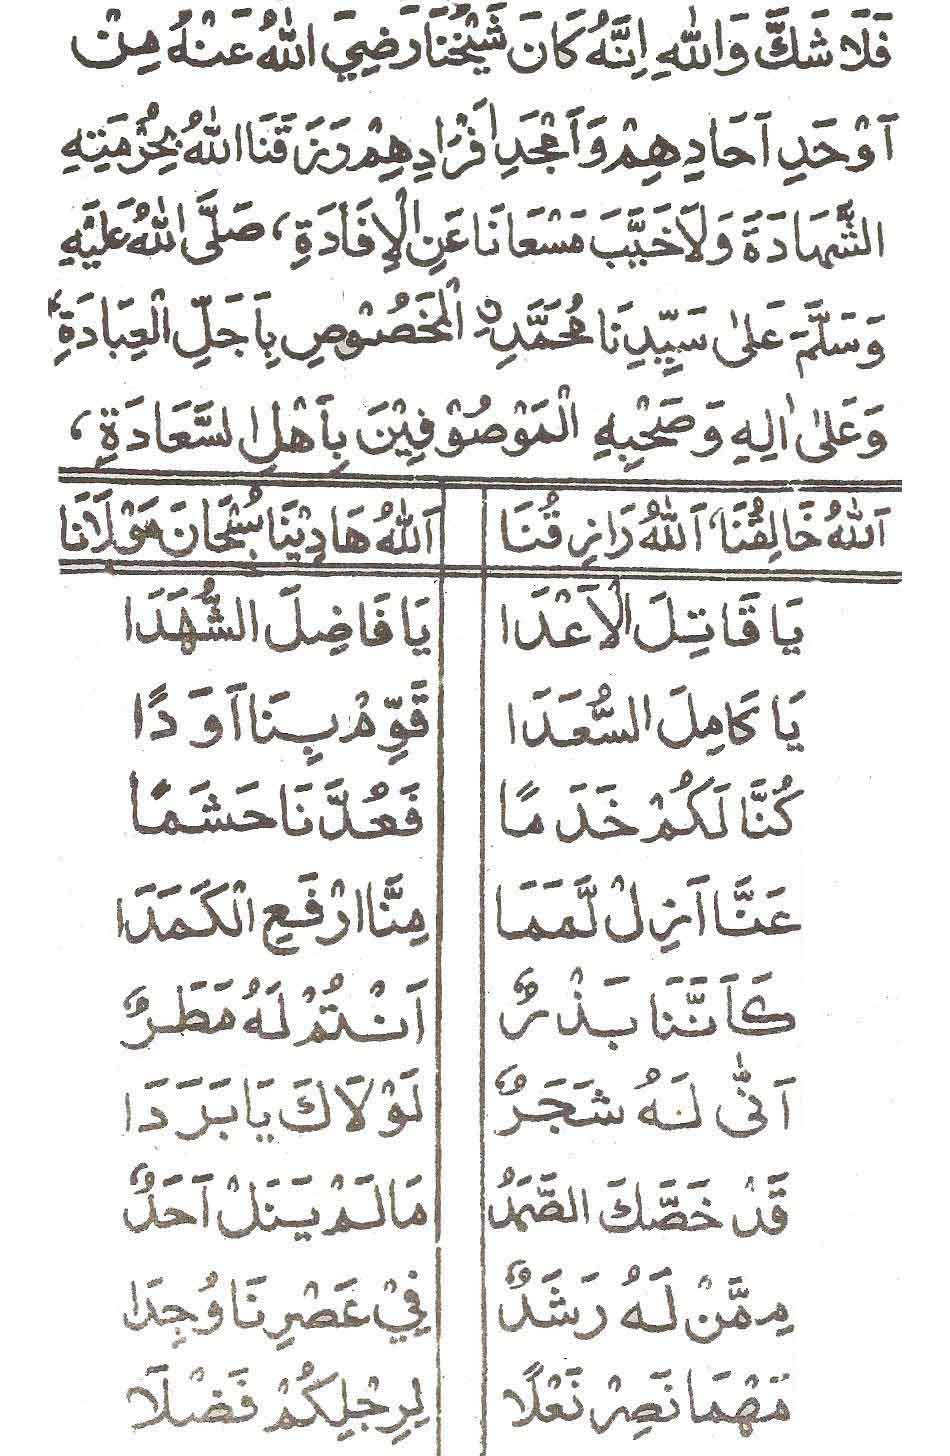 فَلَا شَكَّ وَاللّٰهِ اِنَّهُ كَانَ شَيْخُنَا رَضِيَ اللّٰهُ عَنْهُ مِنْ
اَوْحَدِ اَحَادِهِمْ وَاَمْجَدِ اَفْرَادِهِمْ رَزَقَنَا اللّٰهُ بِحُرْمَتِهِ
الشَّهَادَةَ وَلَا خَيَّبَ مَسْعَانَا عَنِ الْاِفَادَةِ، صَلَّى اللّٰهُ عَلَيْهِ
وَسَلَّمَ عَلٰى سَيِّدِنَا مُحَمَّدِنِ الْمَخْصُوْصِ بِاَجَلِّ الْعِبَادَةِ،
وَعَلٰى اٰلِهِ وَصَحْبِهِ الْمَوْصُوْفِيْنَ بِاَهْلِ السَّعَادَةِ،
اَللّٰهُ خَالِقُنَا، اَللّٰهُ رَازِقُنَا اَللّٰهُ هَادِيْنَا سُبْحَانَ مَوْلَانَا
يَا قَاتِلَ الْاَعْدَا يَا فَاضِلَ الشُّهَدَا
يَا كَامِلَ السُّعَدَا قَوِّمْ بِنَا اَوَدًا
كُنَّا لَكُمْ خَدَمًا فَعُدَّنَا حَشَمًا
عَنَّا اَزِلْ لَّمَمَا مِنَّا ارْفَعِ الْكَمَدَا
كَاَنَّنَا بَذْرٌ اَنْتُمْ لَهُ مَطَرٌ
اَنّٰى لَهُ شَجَرٌ لَوْلَاكَ يَا بَرَدَا
قَدْ خَصَّكَ الصَّمَدُ مَا لَمْ يَنَلْ اَحَدٌ
مِمَّنْ لَهُ رَشَدٌ فِيْ عَصْرِنَا وُجِدَا
مَهْمَا نَصِرْ نَعْلًا لِرِجْلِكُمْ فَضْلًا